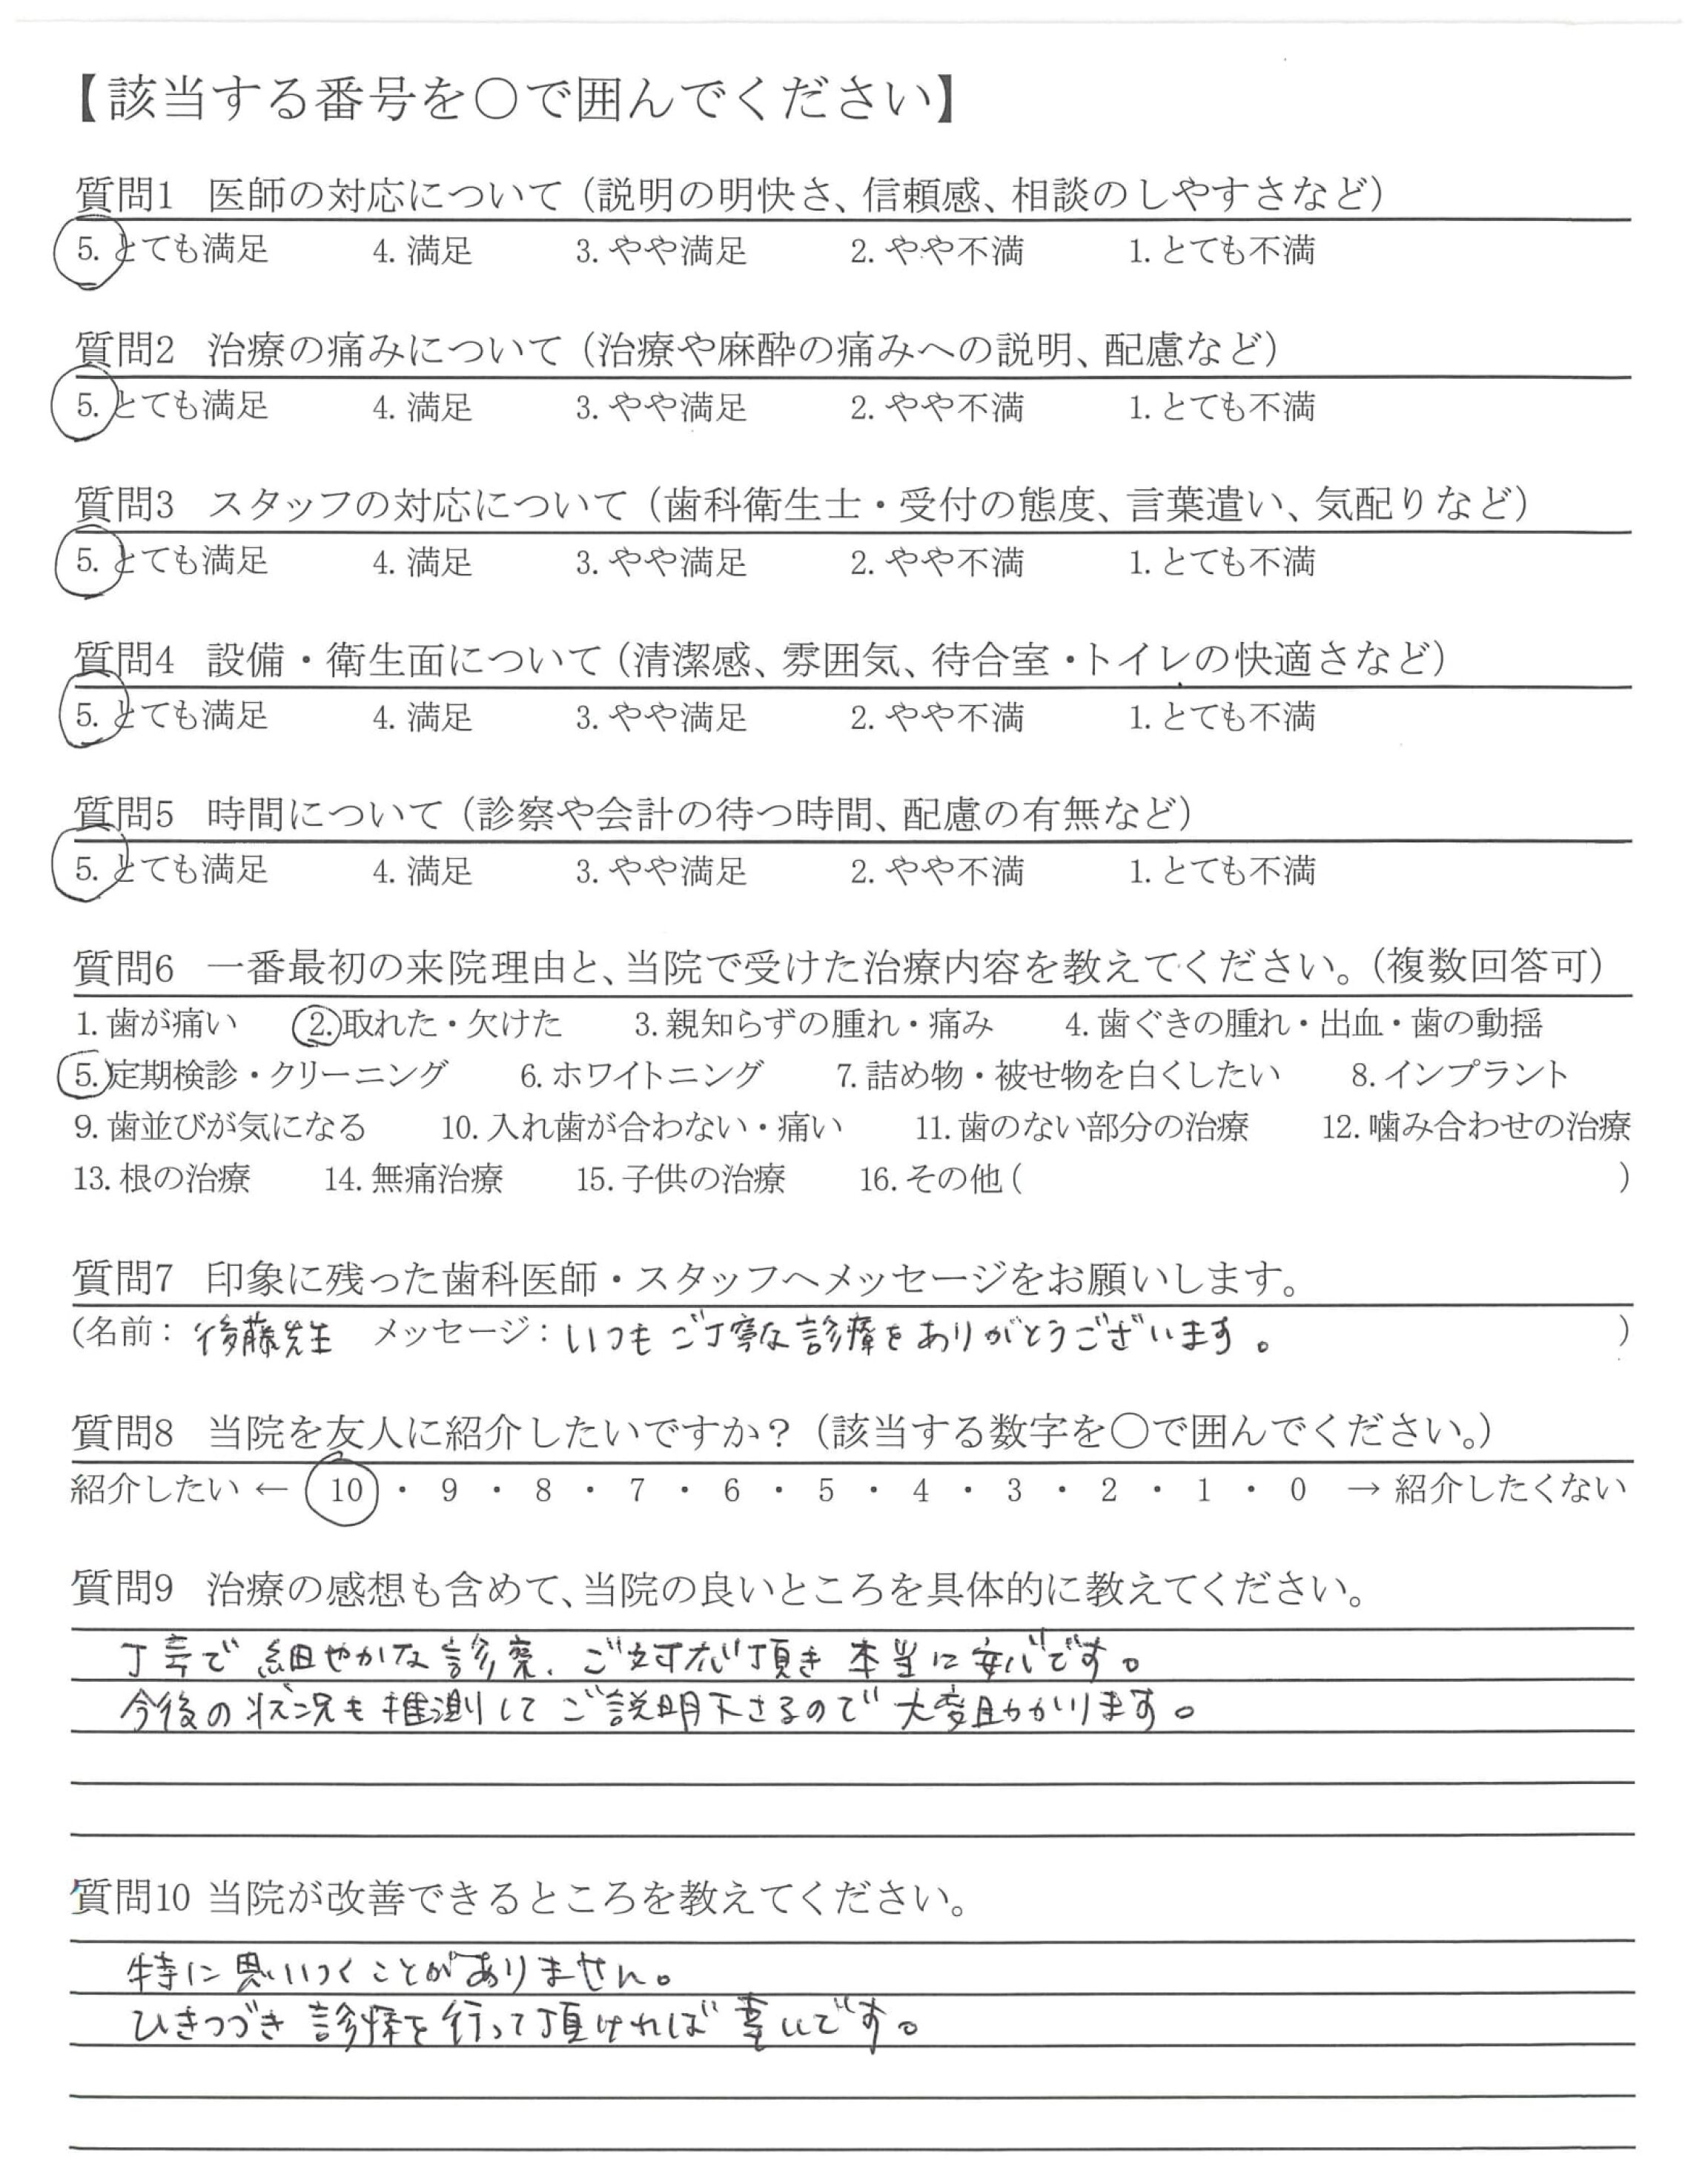 【該当する番号を〇で囲んでください】
質問1 医師の対応について（説明の明快さ、信頼感、相談のしやすさなど）
5. とても満足 4. 満足 3. やや満足 2. やや不満 1. とても不満
質問2 治療の痛みについて（治療や麻酔の痛みへの説明、配慮など）
5. とても満足 4. 満足 3. やや満足 2. やや不満 1. とても不満
質問3 スタッフの対応について（歯科衛生士・受付の態度、言葉遣い、気配りなど）
5. とても満足 4. 満足 3. やや満足 2. やや不満 1. とても不満
質問4 設備・衛生面について（清潔感、雰囲気、待合室・トイレの快適さなど）
5. とても満足 4. 満足 3. やや満足 2. やや不満 1. とても不満
質問5 時間について（診察や会計の待つ時間、配慮の有無など）
5. とても満足 4. 満足 3. やや満足 2. やや不満 1. とても不満
質問6 一番最初の来院理由と、当院で受けた治療内容を教えてください。（複数回答可）
1. 歯が痛い 2. 取れた・欠けた 3. 親知らずの腫れ・痛み 4. 歯ぐきの腫れ・出血・歯の動揺
5. 定期検診・クリーニング 6. ホワイトニング 7. 詰め物・被せ物を白くしたい 8. インプラント
9. 歯並びが気になる 10. 入れ歯が合わない・痛い 11. 歯のない部分の治療 12. 噛み合わせの治療
13. 根の治療 14. 無痛治療 15. 子供の治療 16. その他（ ）
質問7 印象に残った歯科医師・スタッフへメッセージをお願いします。
（名前：後藤先生 メッセージ：いつもご丁寧な診療をありがとうございます。 ）
質問8 当院を友人に紹介したいですか？（該当する数字を〇で囲んでください。）
紹介したい ← 10 ・ 9 ・ 8 ・ 7 ・ 6 ・ 5 ・ 4 ・ 3 ・ 2 ・ 1 ・ 0 → 紹介したくない
質問9 治療の感想も含めて、当院の良いところを具体的に教えてください。
丁寧で細やかな診察、ご対応頂き本当に安心です。
今後の状況も推測してご説明下さるので大変助かります。
質問10 当院が改善できるところを教えてください。
特に思いつくことがありません。
ひきつづき診療を行って頂ければ幸いです。